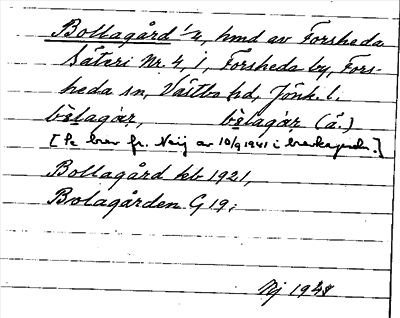 Bollagård 1/2, hmd av Forsheda
Säteri Nr. 4, i Forsheda by, Fors-
heda sn, Västbo hd, Jönk. l.
bèlagàr, bèlagàr (ä.)
[Se brev fr. Neij av 10/9 1941 i brevkapseln.]
Bollagård kb 1921,
Bolagården G 19;
Nj 1938